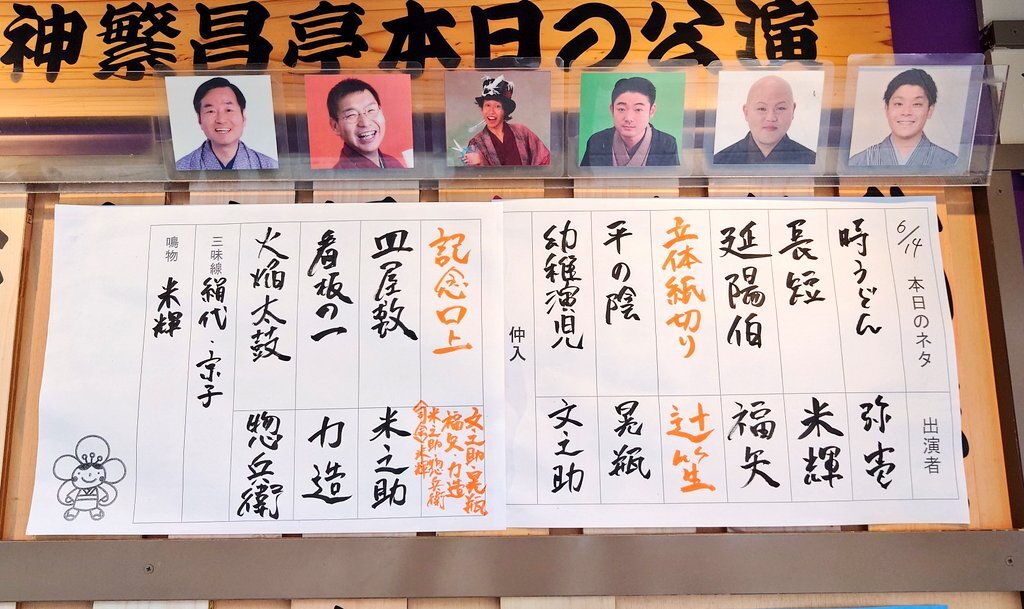 神繁昌亭本日の公演
6/14 本日のネタ 出演者
時うどん 弥壱
長短 米輝
延陽伯 福矢
立体紙切り 辻笙
平の陰 晃瓶
幼稚演児 文之助
仲入
記念口上 文之助・晃瓶
福矢・力造
米之助・惣兵衛
米輝
皿屋敷 米之助
看板の一 力造
火焔太鼓 惣兵衛
三味線 絹代・宗子
鳴物 米輝